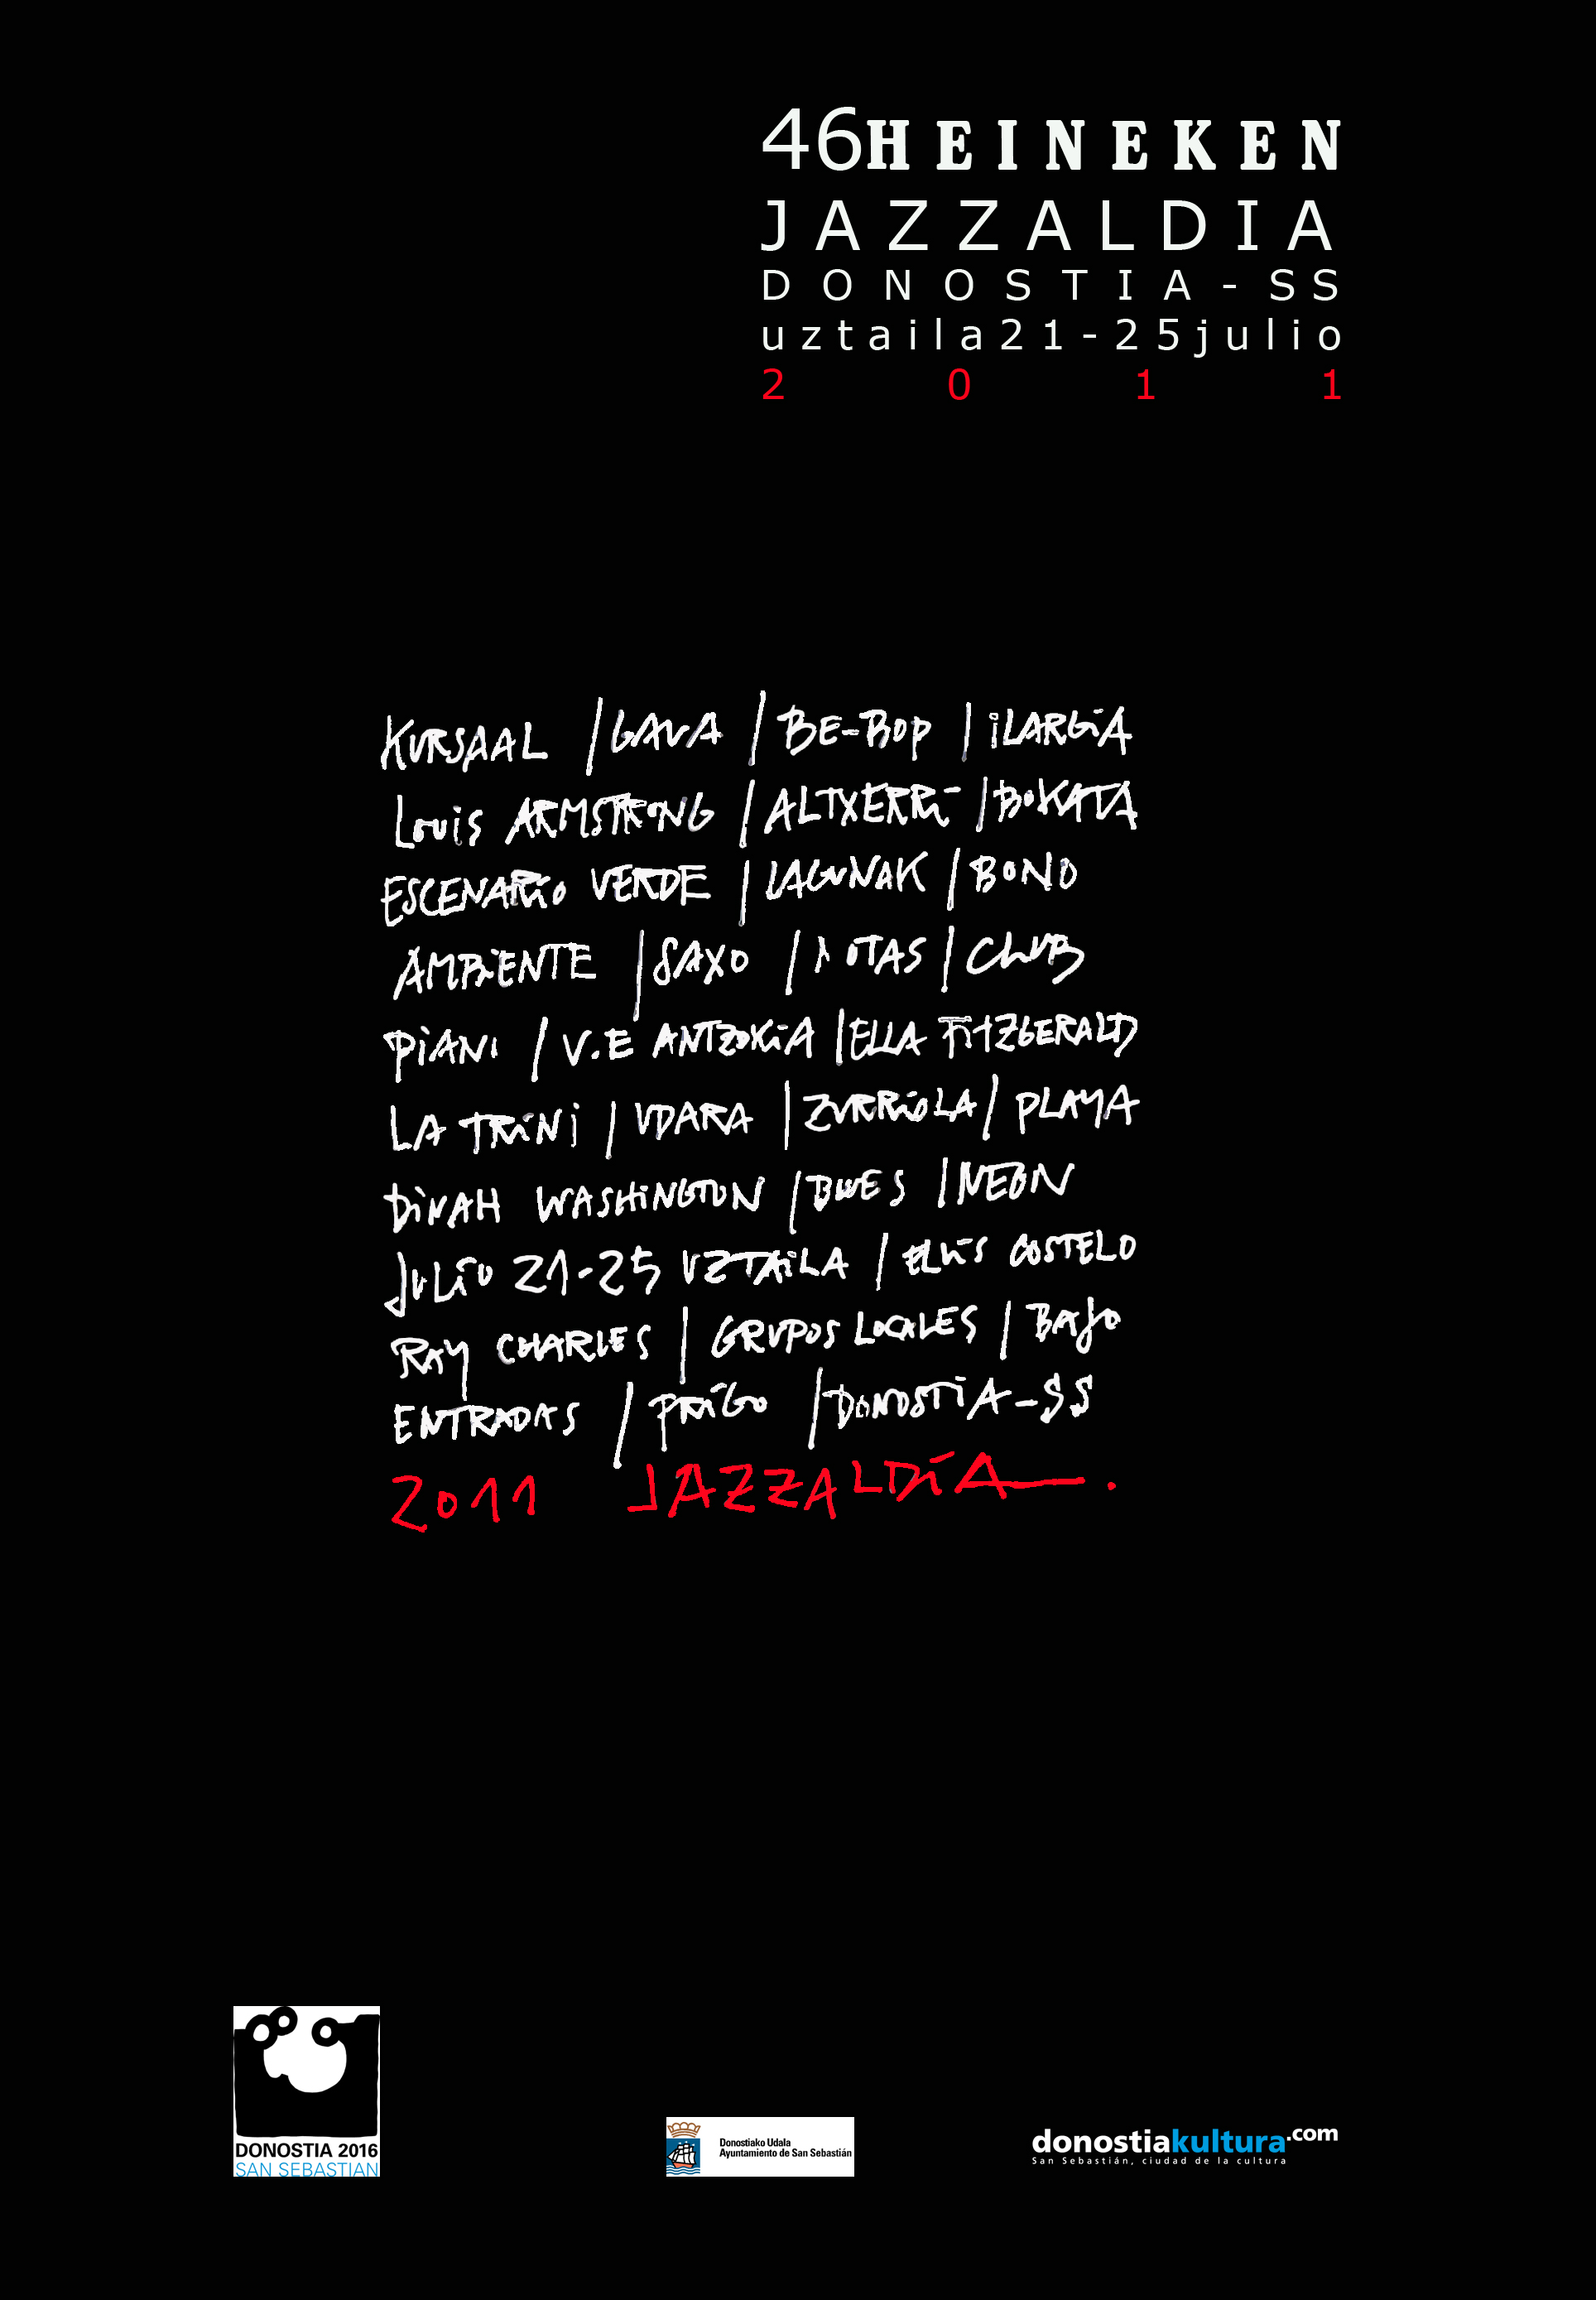 46HEINEKEN
JAZZALDIA
DONOSTIA-SS
uztaila21-25julio
2011
KURSAAL / GAUA / BE-BOP / iLARGiA
Louis ARMSTRONG / ALTXERRi / BOKATA
ESCENARiO VERDE / LAGUNAK / BONO
AMBiENTE / SAXO / NOTAS / CLUB
PiANi / V.E ANTZOKiA / ELLA FiTZGERALD
LA TRiNi / UDARA / ZURRiOLA / PLAYA
DiNAH WASHiNGTON / BLUES / NEON
JULiO 21-25 UZTAiLA / ELViS COSTELO
RAY CHARLES / GRUPOS LOCALES / BAJO
ENTRADAS / / DONOSTiA-SS
2011 JAZZALDiA.
DONOSTIA 2016
SAN SEBASTIAN
Donostiako Udala
Ayuntamiento de San Sebastián
donostiakultura.com
San Sebastián, ciudad de la cultura